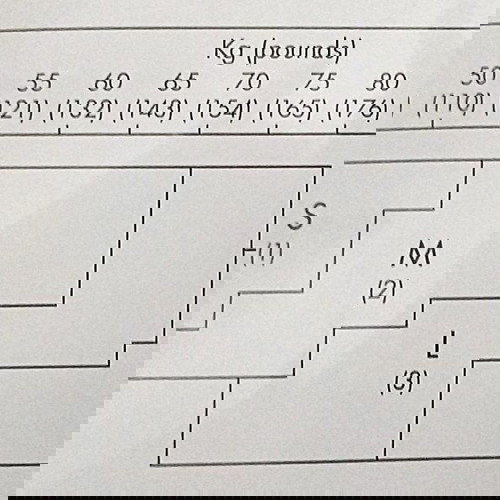 Kg (pounds)
55 60 65 70 75 80 50
(132) (154) (165) (176) (110)
S
(1)
M
(2)
L
(3)